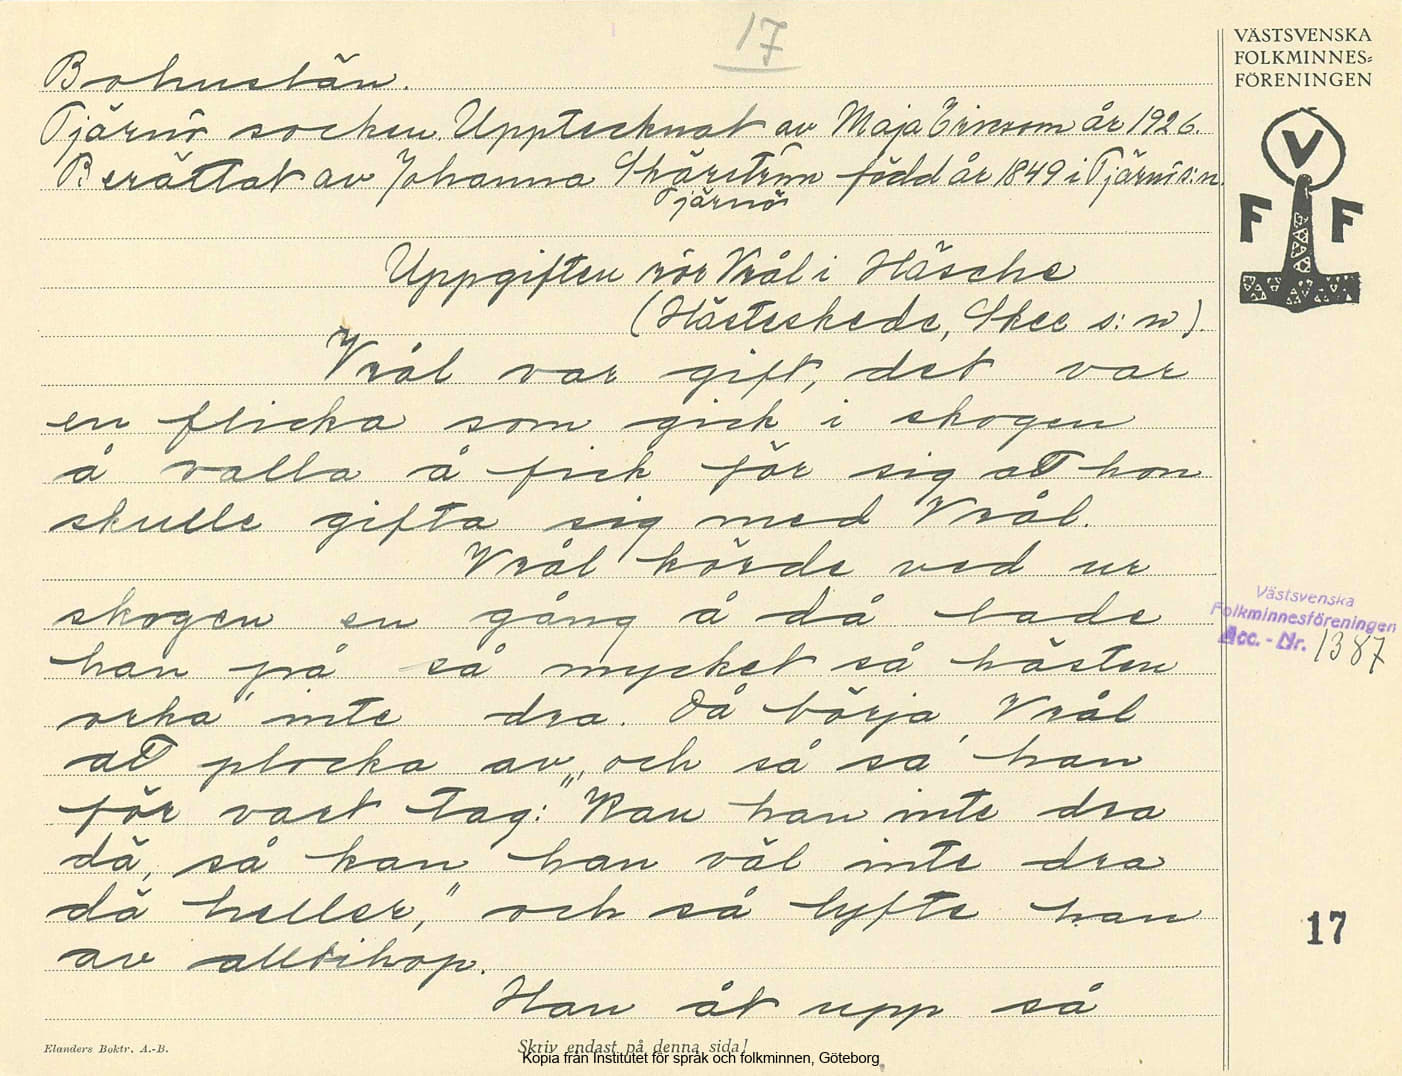 17
VÄSTSVENSKA
FOLKMINNES=
FÖRENINGEN
V
F F
Bohuslän.
Tjärnö socken. Upptecknat av Maja Ericson år 1926.
Berättat av Johanna Skärström född år 1849 i Tjärnö s:n.
Tjärnö
Uppgiften rör Vrål i Häsche
(Hästeskede, Skee s:n).
Vrål var gift, det var
en flicka som gick i skogen
å valla å fick för sig att hon
skulle gifta sig med Vrål.
Vrål körde ved ur
skogen en gång å då lade
han på så mycket så hästen
orka' inte dra. Då börja' Vrål
att plocka av, och så sa' han
för vart tag: "Kan han inte dra
dä, så kan han väl inte dra
dä heller," och så lyfte han
av alltihop.
Han åt upp så
Västsvenska
Folkminnesföreningen
Acc. - Nr. 1387
17
Elanders Boktr. A.-B.
Skriv endast på denna sida!
Kopia från Institutet för språk och folkminnen, Göteborg